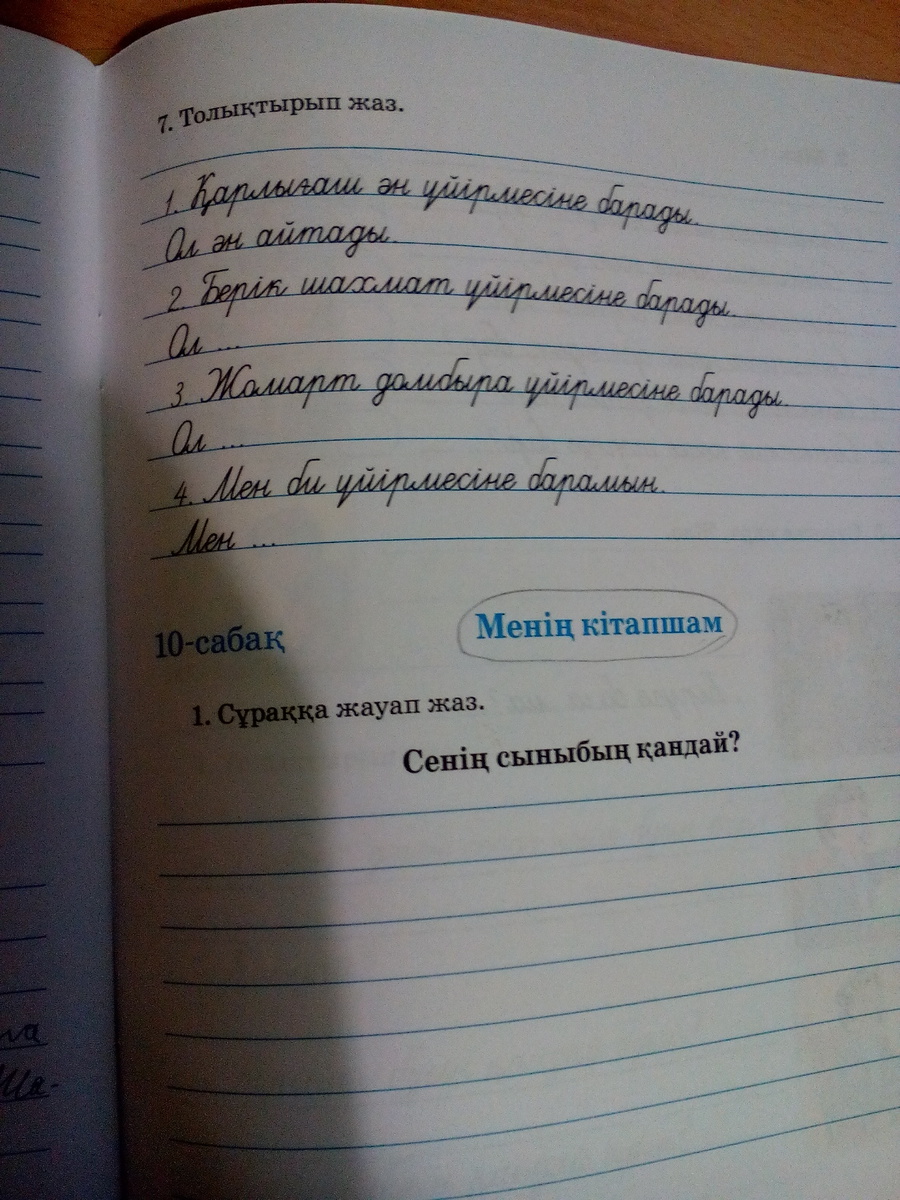 7. Толықтырып жаз.
1. Қарлығаш ән үйірмесіне барады.
Ол ән айтады.
2. Берік шахмат үйірмесіне барады.
Ол ...
3. Жомарт домбыра үйірмесіне барады.
Ол ...
4. Мен би үйірмесіне барамын.
Мен ...
10-сабақ
Менің кітапшам
1. Сұраққа жауап жаз.
Сенің сыныбың қандай?